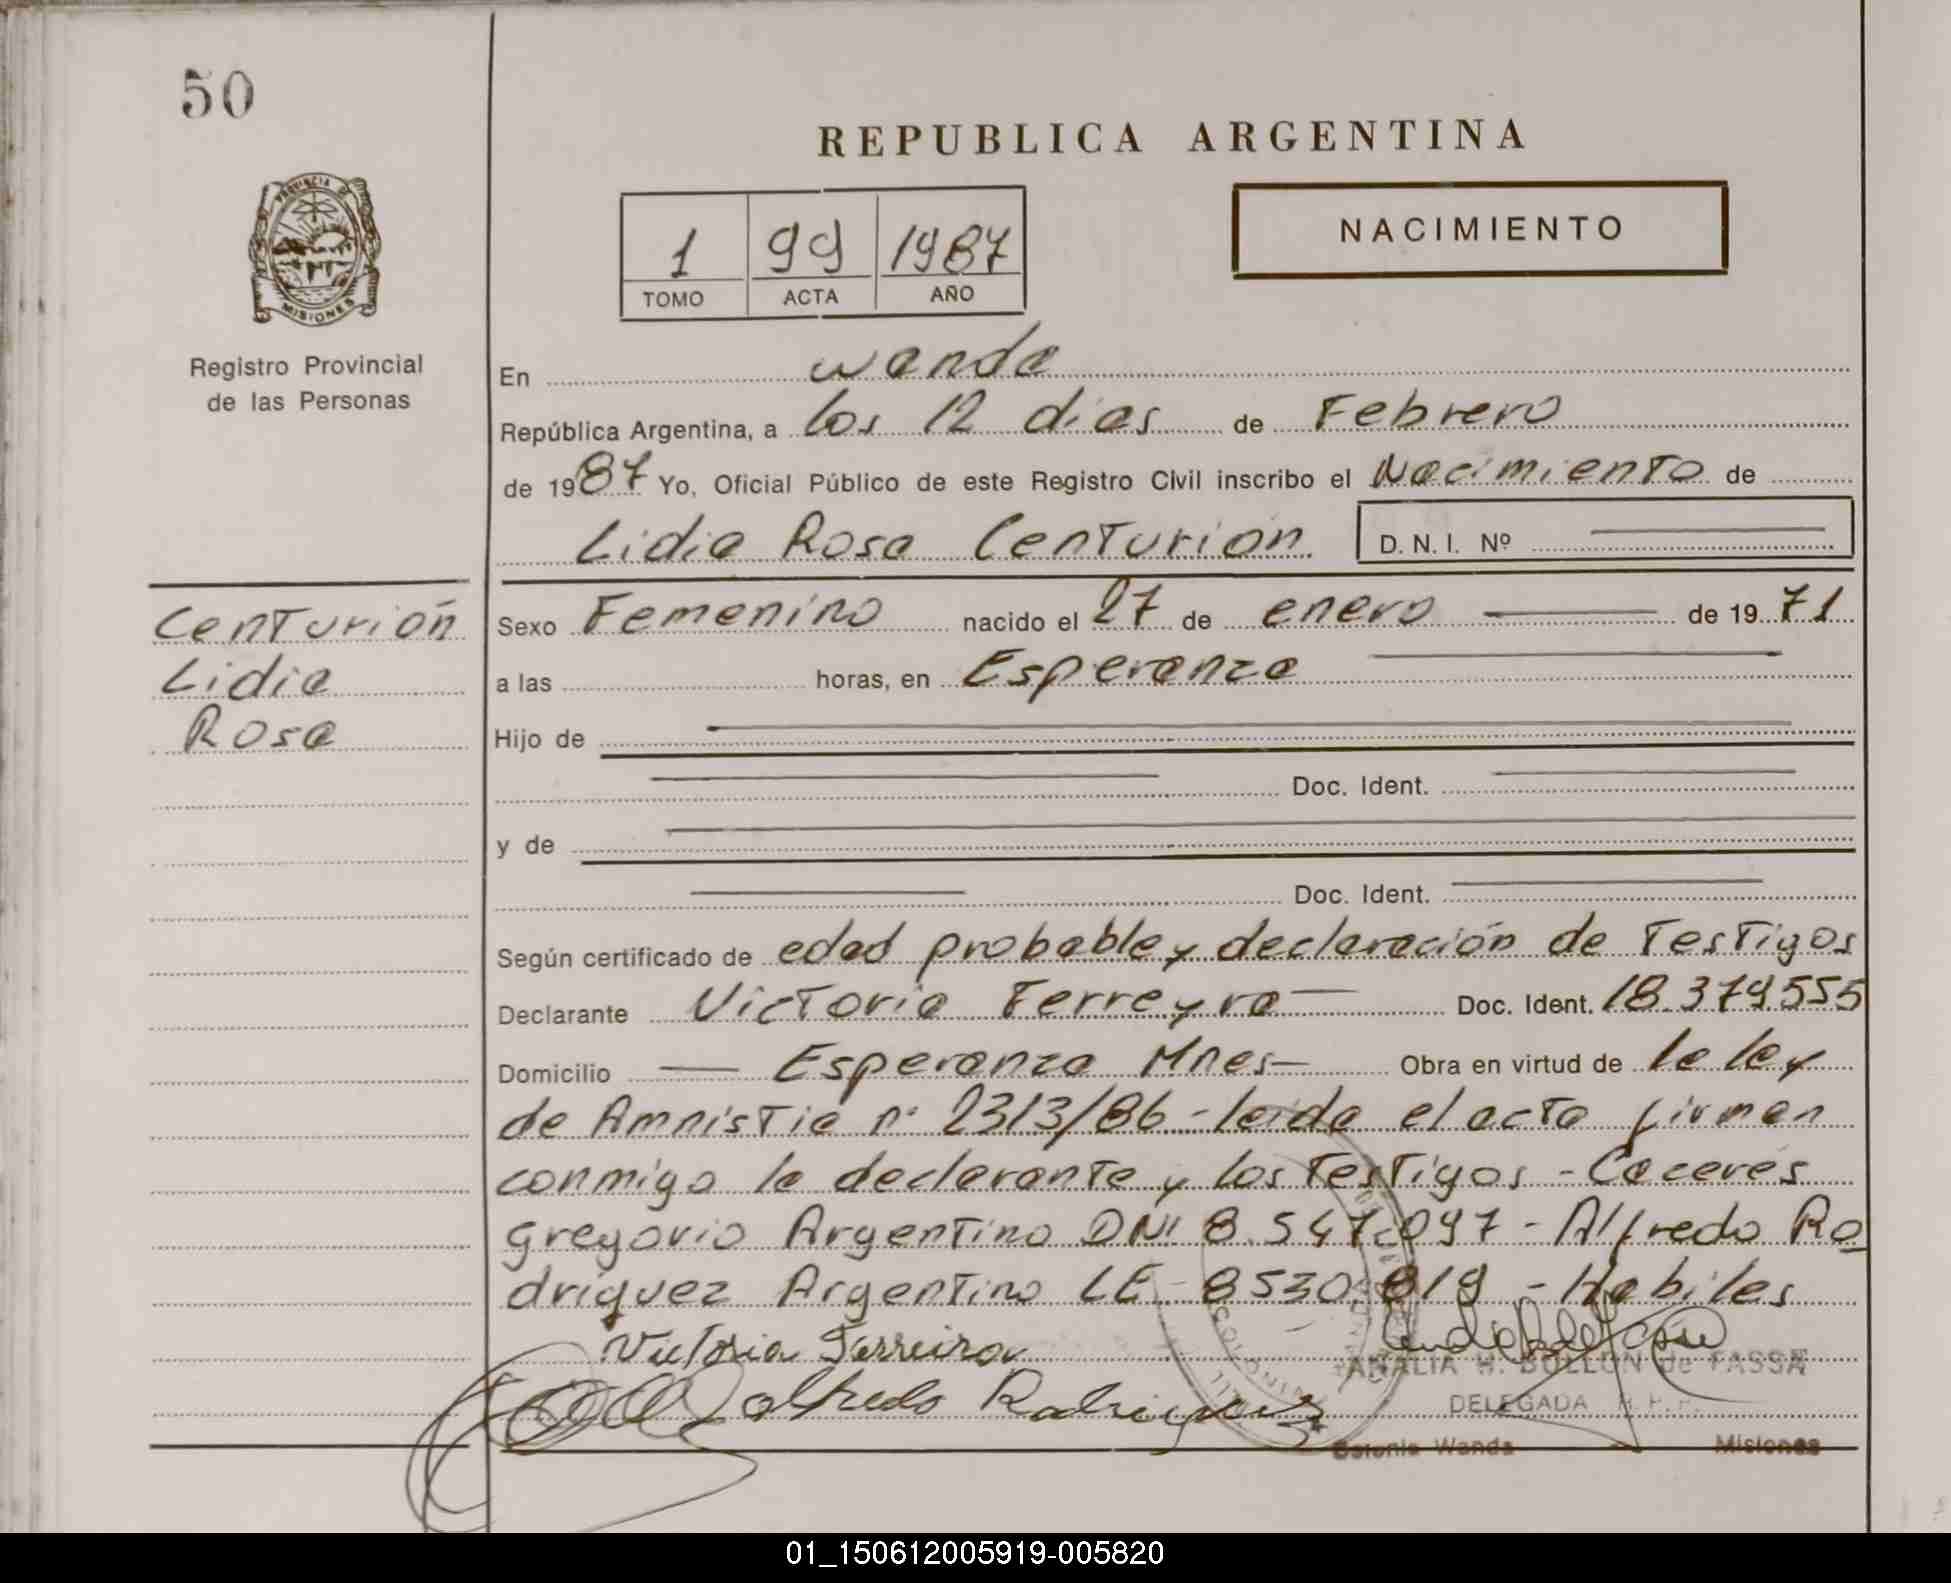 50
REPUBLICA ARGENTINA
PROVINCIA DE
MISIONES
1 99 1987
TOMO ACTA AÑO
NACIMIENTO
Registro Provincial
de las Personas
En wanda
República Argentina, a los 12 dias de Febrero
de 1987 Yo, Oficial Público de este Registro Civil inscribo el Nacimiento de
Lidia Rosa Centurión D.N.I. Nº
Centurión
Lidia
Rosa
Sexo Femenino nacido el 27 de enero de 1971
a las horas, en Esperanza
Hijo de
Doc. Ident.
y de
Doc. Ident.
Según certificado de edad probable y declaración de Testigos
Declarante Victoria Ferreyra Doc. Ident. 18.379.555
Domicilio Esperanza Mnes Obra en virtud de la ley
de Amnistia nº 2313/86 - leida el acta firman
conmigo la declarante y los Testigos - Caceres
gregorio Argentino DNI 8.547.097 - Alfredo Ro
driguez Argentino LE 8530.819 - Habiles
Victoria Ferreira
Alfredo Rodriguez
ANALIA H. BOLLON de FASSA
DELEGADA R.P.P.
Colonia Wanda Misiones
01_150612005919-005820